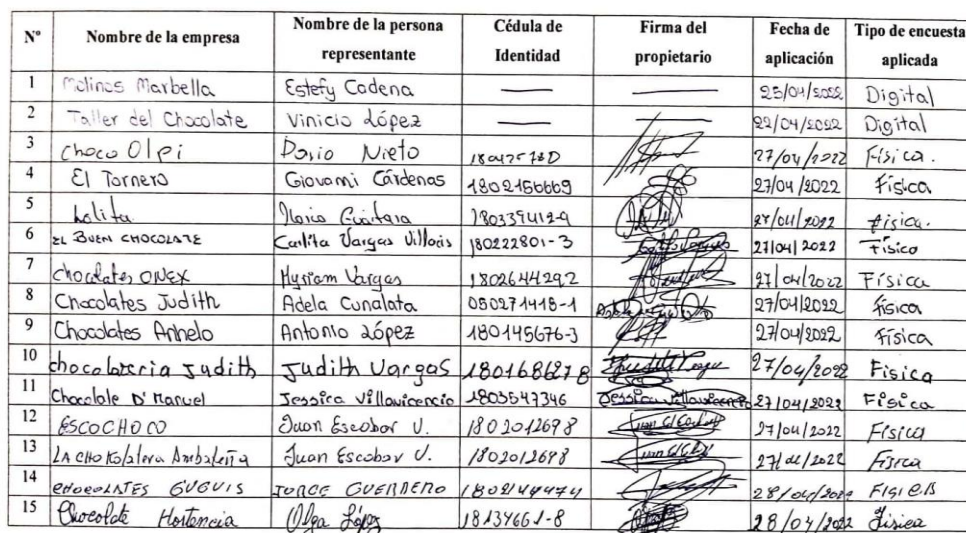 Nº Nombre de la empresa Nombre de la persona representante Cédula de Identidad Firma del propietario Fecha de aplicación Tipo de encuesta aplicada
1 Molinos Marbella Estefy Cadena — — 25/04/2022 Digital
2 Taller del Chocolate Vinicio López — — 22/04/2022 Digital
3 Choco Olpi Dario Nieto 27/04/2022 Física.
4 El Tornero Giovanni Cárdenas 1802156669 27/04/2022 Física
5 Lolita 180339412-9 27/04/2022 física.
6 EL BUEN CHOCOLATE Carlita Vargas Villacis 180222801-3 27/04/2022 Físico
7 Chocolates ONEX Myriam Vargas 1802644292 27/04/2022 Física
8 Chocolates Judith Adela Cunalata 050271418-1 27/04/2022 física
9 Chocolates Anhelo Antonio López 180145676-3 27/04/2022 física
10 chocolateria Judith Judith Vargas 1801686278 27/04/2022 Fisica
11 Chocolate D' Manuel Jessica Villavicencio 1803547346 Jessica Villavicencio 27/04/2022 Física
12 ESCOCHOCO Juan Escobar V. 1802012698 27/04/2022 Física
13 LA CHOKOlatera Ambateña Juan Escobar V. 1802012698 27/04/2022 Física
14 CHOCOLATES GUGUIS JORGE GUERRERO 1802144474 28/04/2022 FISICA
15 Chocolate Hortencia Olga López 18134661-8 28/04/2022 Física